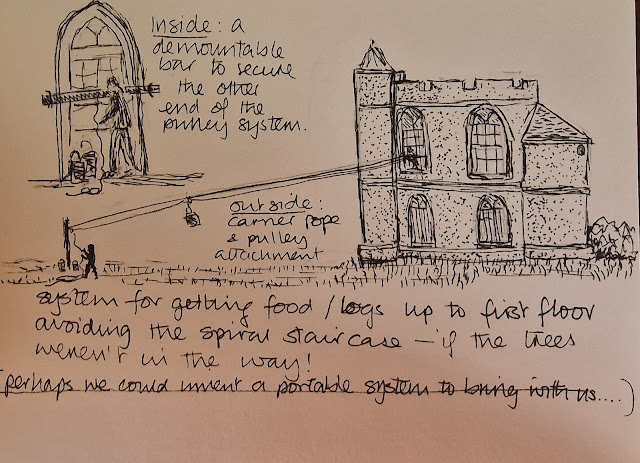 Inside: a
demountable
bar to secure
the other
end of the
pulley system.
outside:
carrier rope
& pulley
attachment
system for getting food / logs up to first floor
avoiding the spiral staircase – if the trees
weren't in the way!
(perhaps we could invent a portable system to bring with us....)